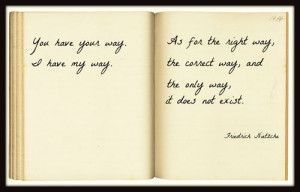 You have your way.
I have my way.
As for the right way,
the correct way, and
the only way,
it does not exist.
Friedrich Nietzche